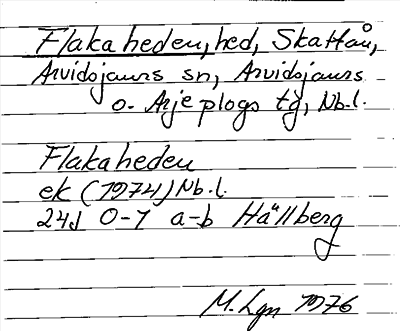 Flakaheden, hed, Skattån,
Arvidsjaurs sn, Arvidsjaurs
o. Arjeplogs tg, Nb.l.
Flakaheden
ek (1974) Nb.l.
24J 0-1 a-b Hällberg
M. Lgn 1976